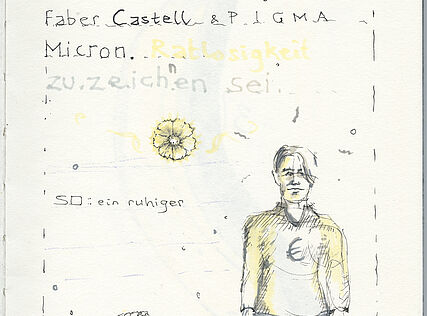 Faber Castell & P.I.G M A
Micron. Ratlosigkeit
zu zeichnen sei.
SO: ein ruhiger
€